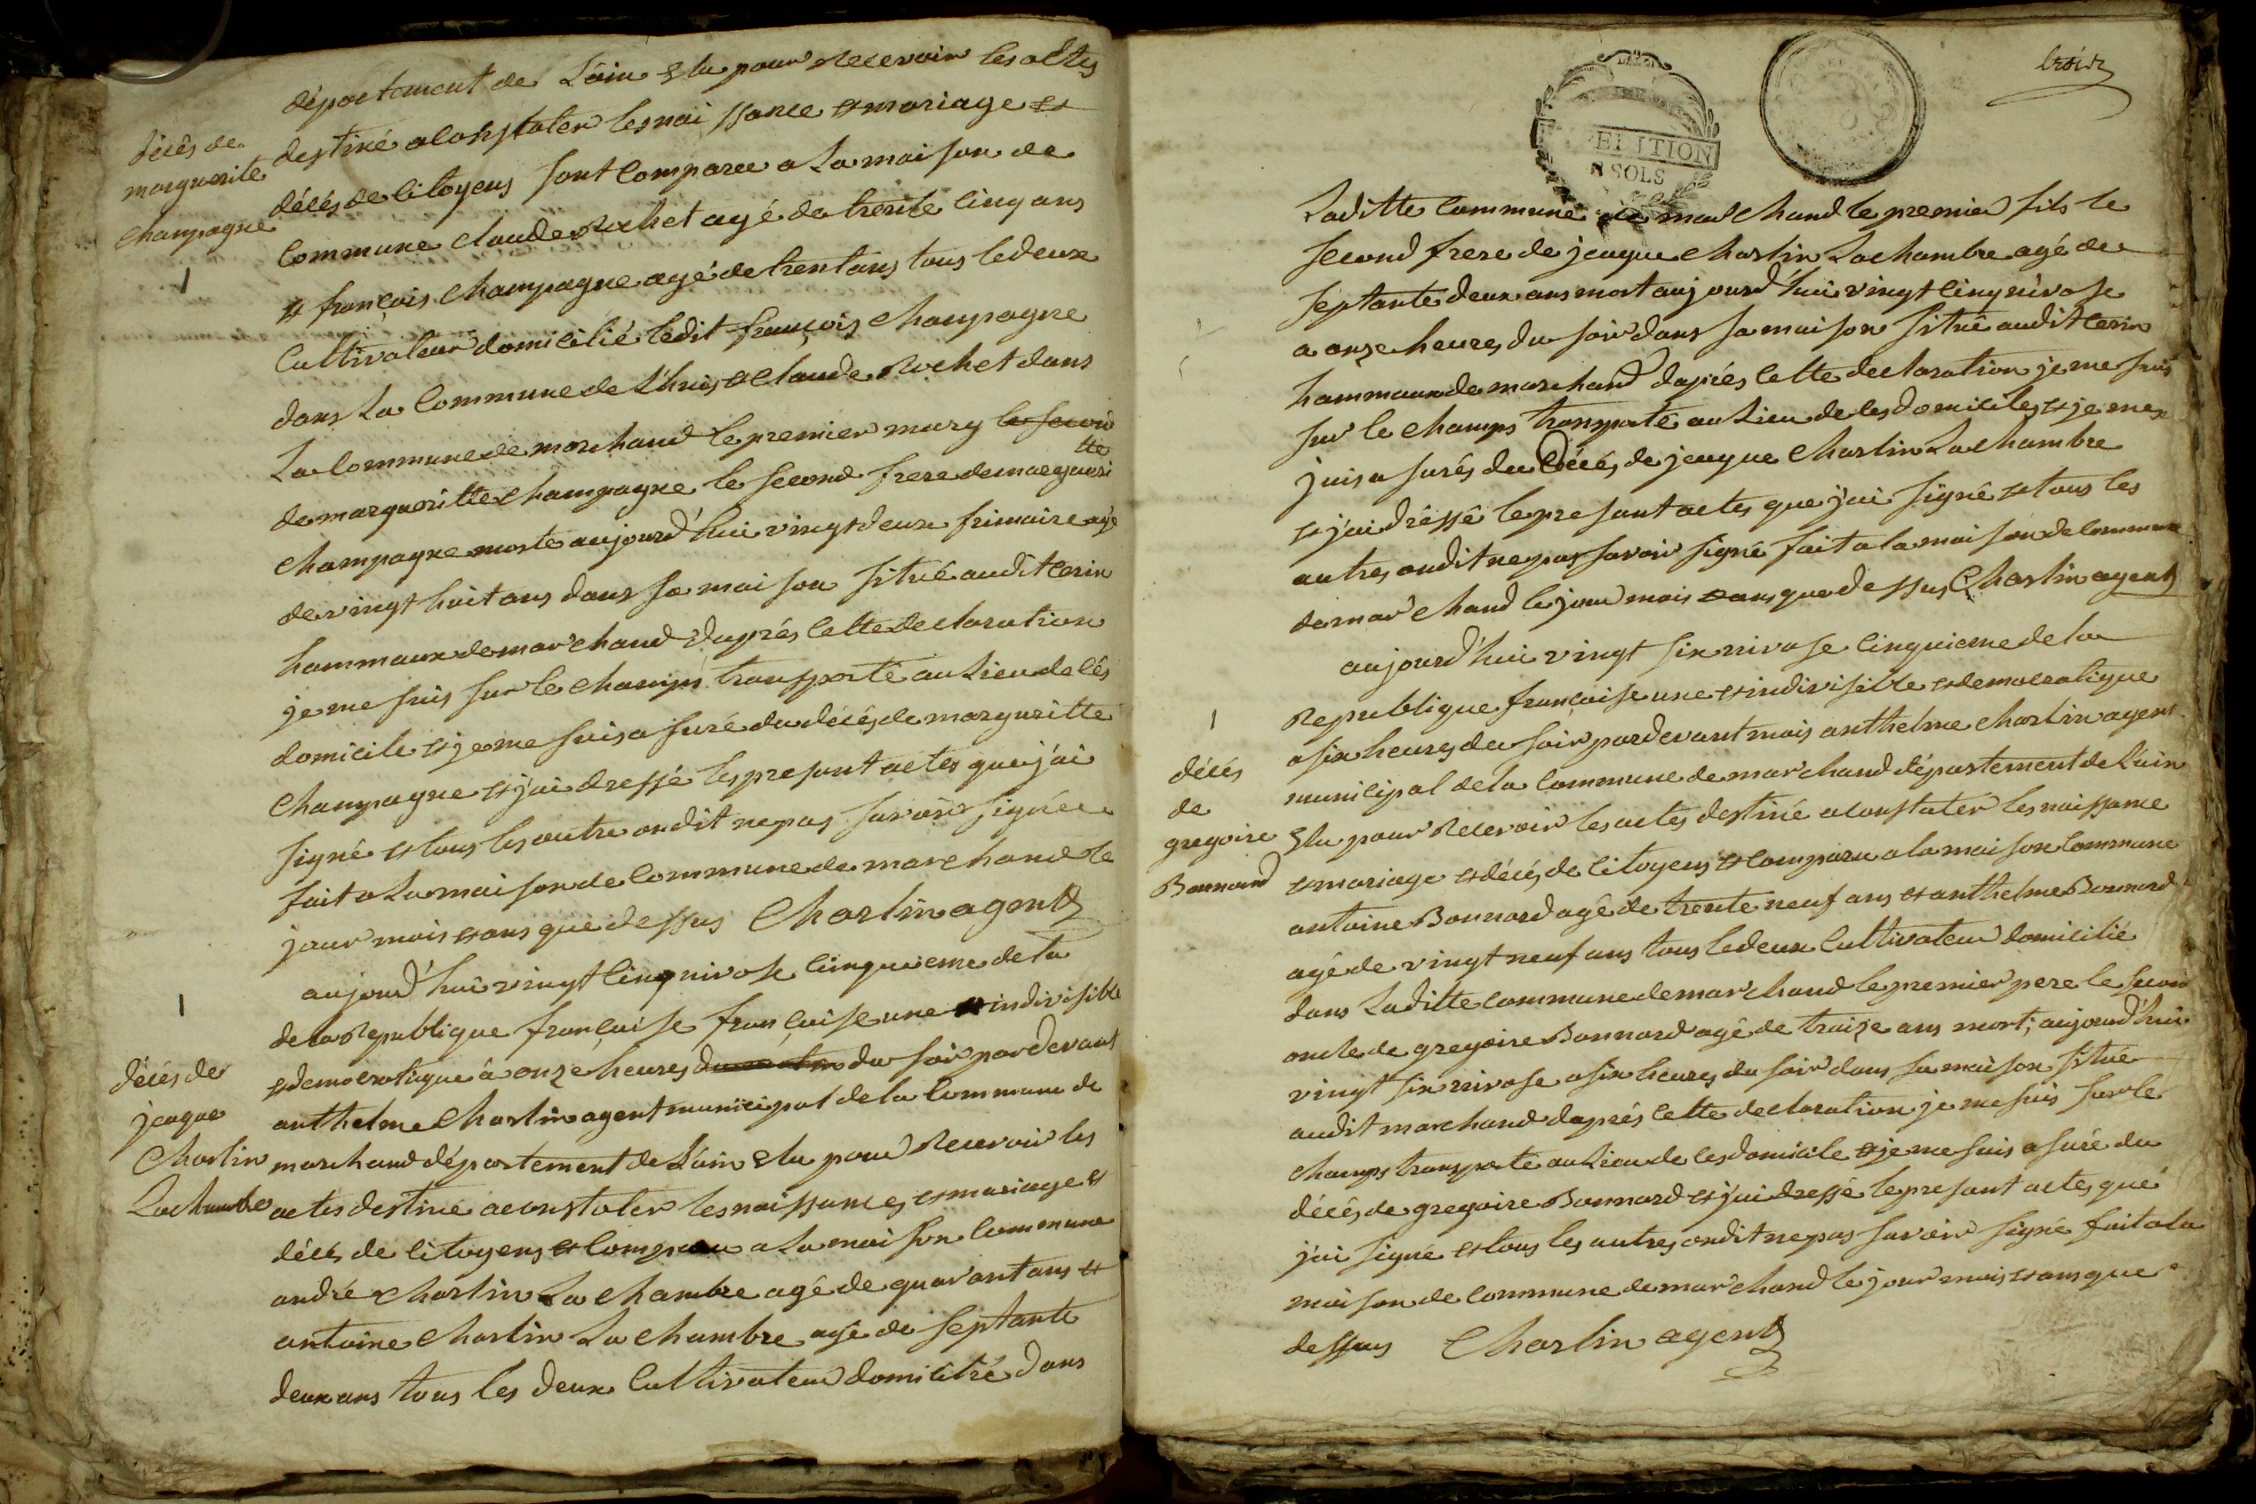 décês de
marguerite
Champagne
1
département de L'ain Elu pour Recevoir les actes
destiné a Constater les nai ssance et mariage et
décés de Citoyens sont Comparu a La maison de
Commune Claude Rochet agé de trente Cinq ans
et françois Champagne agé de trent'ans tous le deux
Cultivateur domicilié ledit françois Champagne
dans La Commune de L'huis et Claude Rochet dans
La Commune de marchand le premier mary le second
de margueritte Champagne le second frere de marguerí
tte
Champagne morte aujourd'hui vingt deux frimaire agé
de vingt huit ans dans sa maison situé audit Cerin
hammaux de marchand d'aprés Cette declaration
je me suis sur le Champs transporté au Lieu de Cés
domicile et je me suis a suré du décés de margueritte
Champagne et j'ai dressé les presant actes que j'ai
signé et tous les autre on dit ne pas savoir signée
fait a La maison de Commune de marchand le
jour mois et ans que dessus Charlin agent
1
décés de
jeaque
Charlin
Lachambre
aujourd'hui vingt Cinq nivose Cinquieme de la
de la Republique française française une et indivisible
et democratique à onze heures du du soir pardevant
anthelme Charlin agent municipal de la Commune de
marchand département de L'ain Elu pour Recevoir les
actes destiné a constater les naissances et mariage et
décés de Citoyens et Comparu a La maison Commune
andré Charlin La Chambre agé de quarant ans et
antoine Charlin La Chambre agé de septante
deux ans tous les deux Cultivateur domicilié dans
troix
Laditte Commune de marchand le premier fils le
second frere de jeaque Charlin Lachambre agé de
septante deux ans mort aujourd'hui vingt Cinq nivose
a onze heures du soir dans sa maison situé audit Cerin
hammaux de marchand d'aprés Cette declaration je me suis
sur le Champs transporté au Lieu de Ces domiciles et je me
suis a surés du décés de jeaque Charlin Lachambre
et j'ai dressé le presant actes que j'ai signé et tous les
autres on dit ne pas savoir signé fait a la maison de Commune
de marchand le jour mois et ans que dessus Charlin agent
1
décés
de
gregoire
Bonnard
aujourd'hui vingt six nivose Cinquieme de la
Republique française une et indivisible et democratique
a six heures du soir pardevant mois anthelme Charlin agent
municipal de la Commune de marchand département de L'ain
Elu pour Recevoir les actes destiné a Constater les naissance
et mariage et décés de Citoyens et Comparu a la maison Commune
antoine Bonnard agé de trente neuf ans et anthelme Bonnard
agé de vingt neuf ans tous le deux Cultivateur domicilié
dans Laditte commune de marchand le premier pere le second
oncle de gregoire Bonnard agé de traize ans mort; aujourd'hui
vingt six nivose a six heures du soir dans sa maison situé
audit marchand d'aprés Cette declaration je me suis sur le
Champs transporté au Lieu de Ces domicile et je me suis a suré du
décés de gregoire Bonnard et j'ai dressé le presant actes que
j'ai signé et tous les autres on dit ne pas savoir signé fait a la
maison de Commune de marchand le jour mois et ans que
dessus Charlin agent